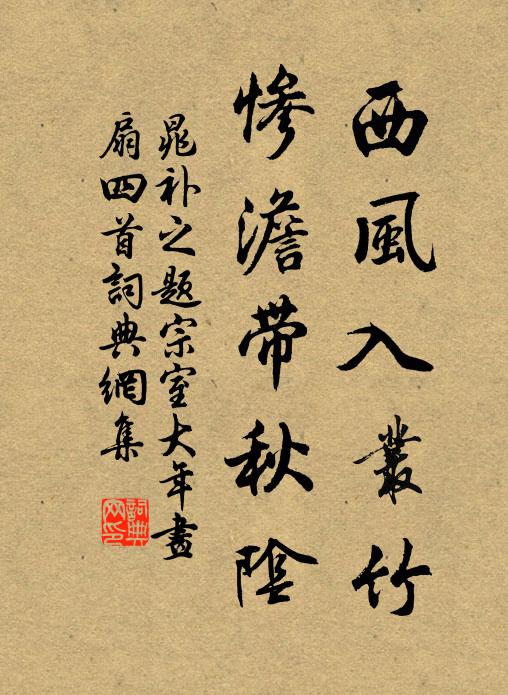 西風入叢竹
慘澹帶秋陰
晁補之題宗室大年畫
扇四首詞典網集
詞典
网印